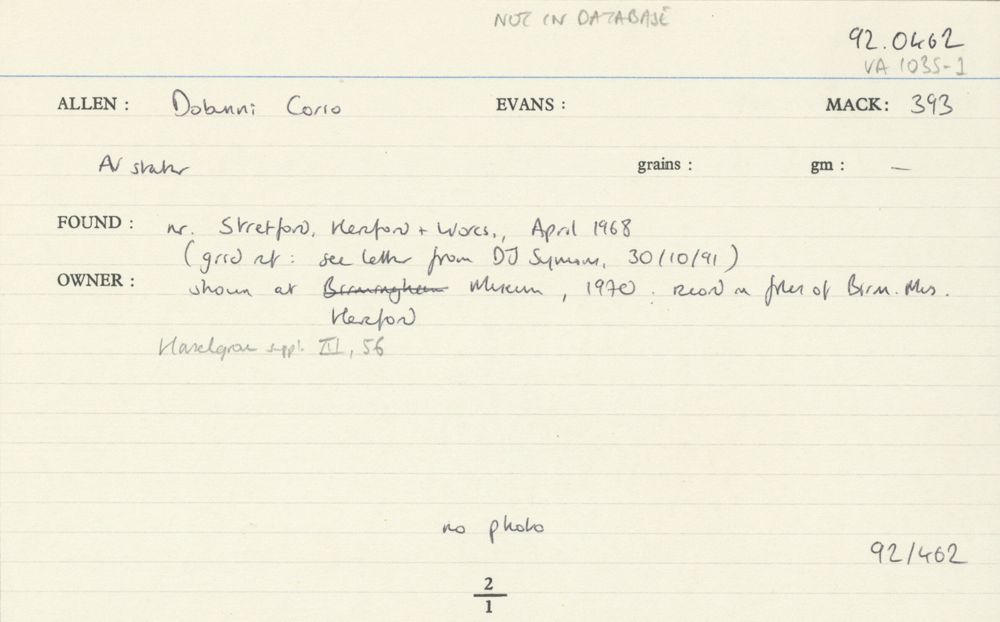 NOT IN DATABASE
92.0462
VA 1035-1
ALLEN : Dobunni Corio EVANS : MACK: 393
AV stater grains : gm : —
FOUND : nr. Stretford, Hereford + Worcs., April 1968
(grid ref: see letter from DJ Symons, 30/10/91)
OWNER : shown at Birmingham Museum, 1970. record in files of Birm. Mus.
Hereford
Haselgrove suppl. III, 56
no photo
92/462
2
1